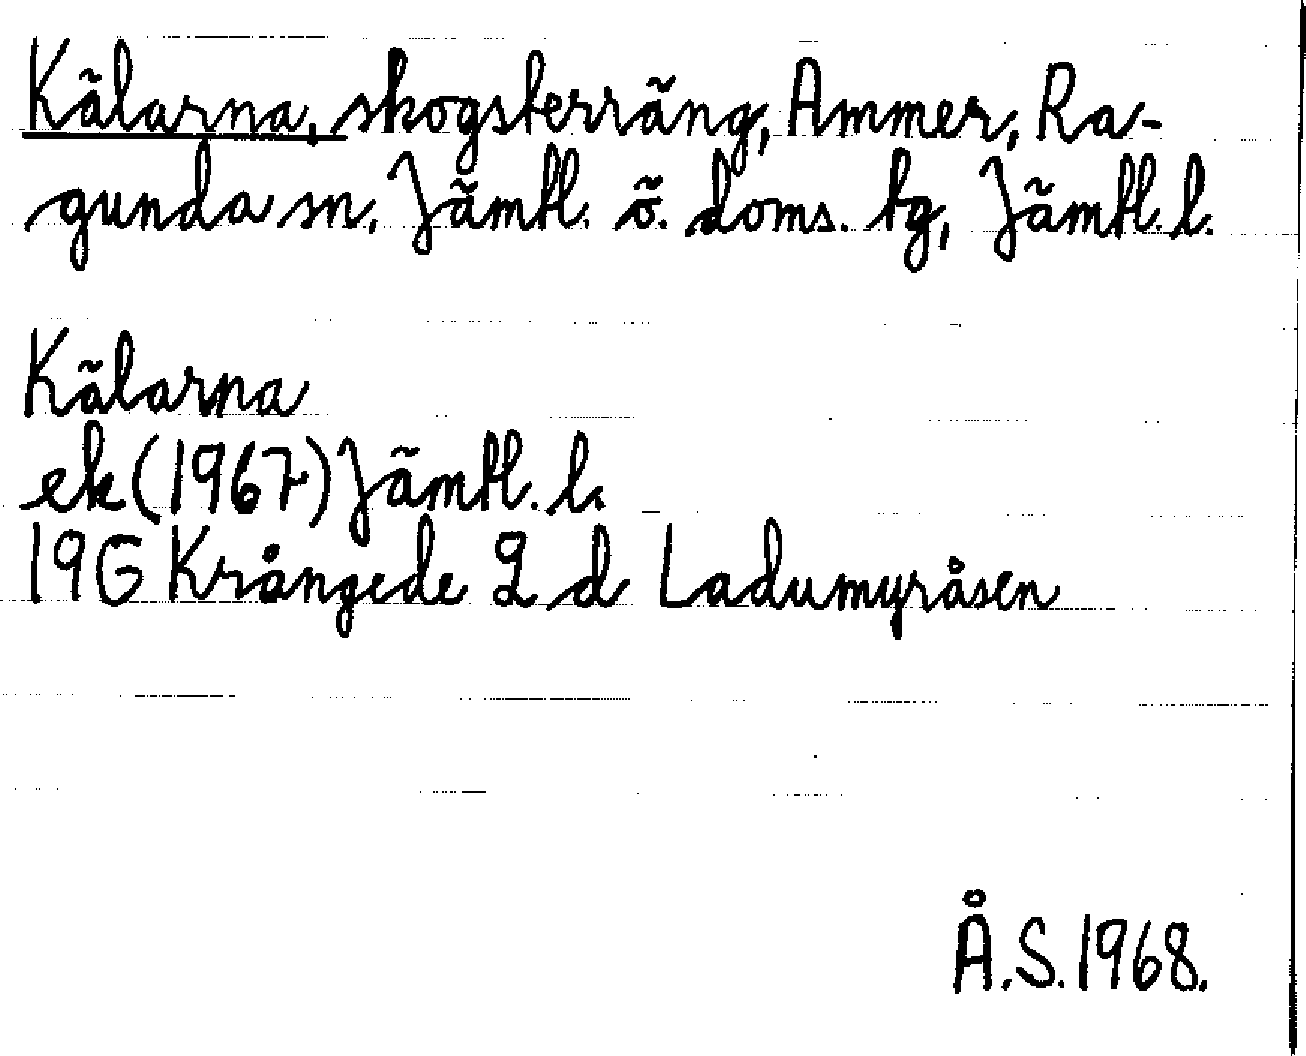 Kälarna, skogsterräng, Ammer, Ra-
gunda sn, Jämtl. ö. doms. tg, Jämtl. l.
Kälarna
ek (1967) Jämtl. l.
19G Krångede 2 d Ladumyråsen
Å.S. 1968.